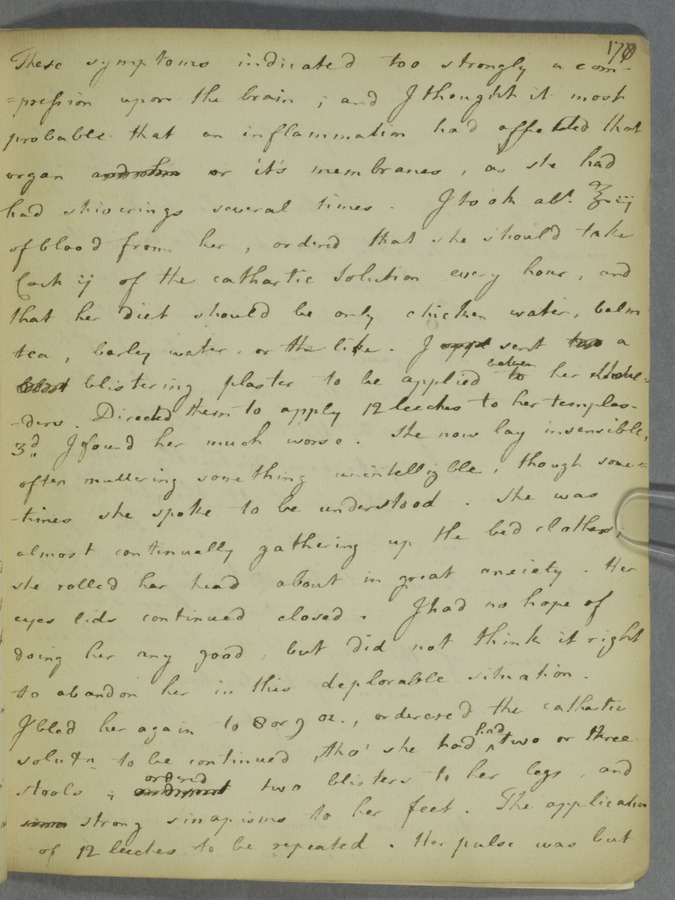 170
These symptoms indicated too strongly a com-
-pression upon the brain ; and I thought it most
probable that an inflammation had affected that
organ or it's membranes, as she had
had shiverings several times . I took abt. ℥
of blood from her , ordered that she should take
ij of the cathartic solution every hour, and
that her diet should be only chicken water, balm
tea , barley water, or the like . I sent a
blistering plaster to be applied between her shoul-
-ders . Directed them to apply 12 leeches to her temples-
3d. I found her much worse . She now lay insensible,
often muttering something unintelligible , though some-
-times she spoke to be understood . She was
almost continually gathering up the bed clothes;
she rolled her head about in great anxiety . Her
eyes lids continued closed . I had no hope of
doing her any good , but did not think it right
to abandon her in this deplorable situation .
I bled her again to 8 or 9 oz., ordered the cathartic
solutn to be continued , tho' she had had two or three
stools ; ordered two blisters to her legs , and
strong sinapisms to her feet . The application
of 12 leeches to be repeated . Her pulse was but